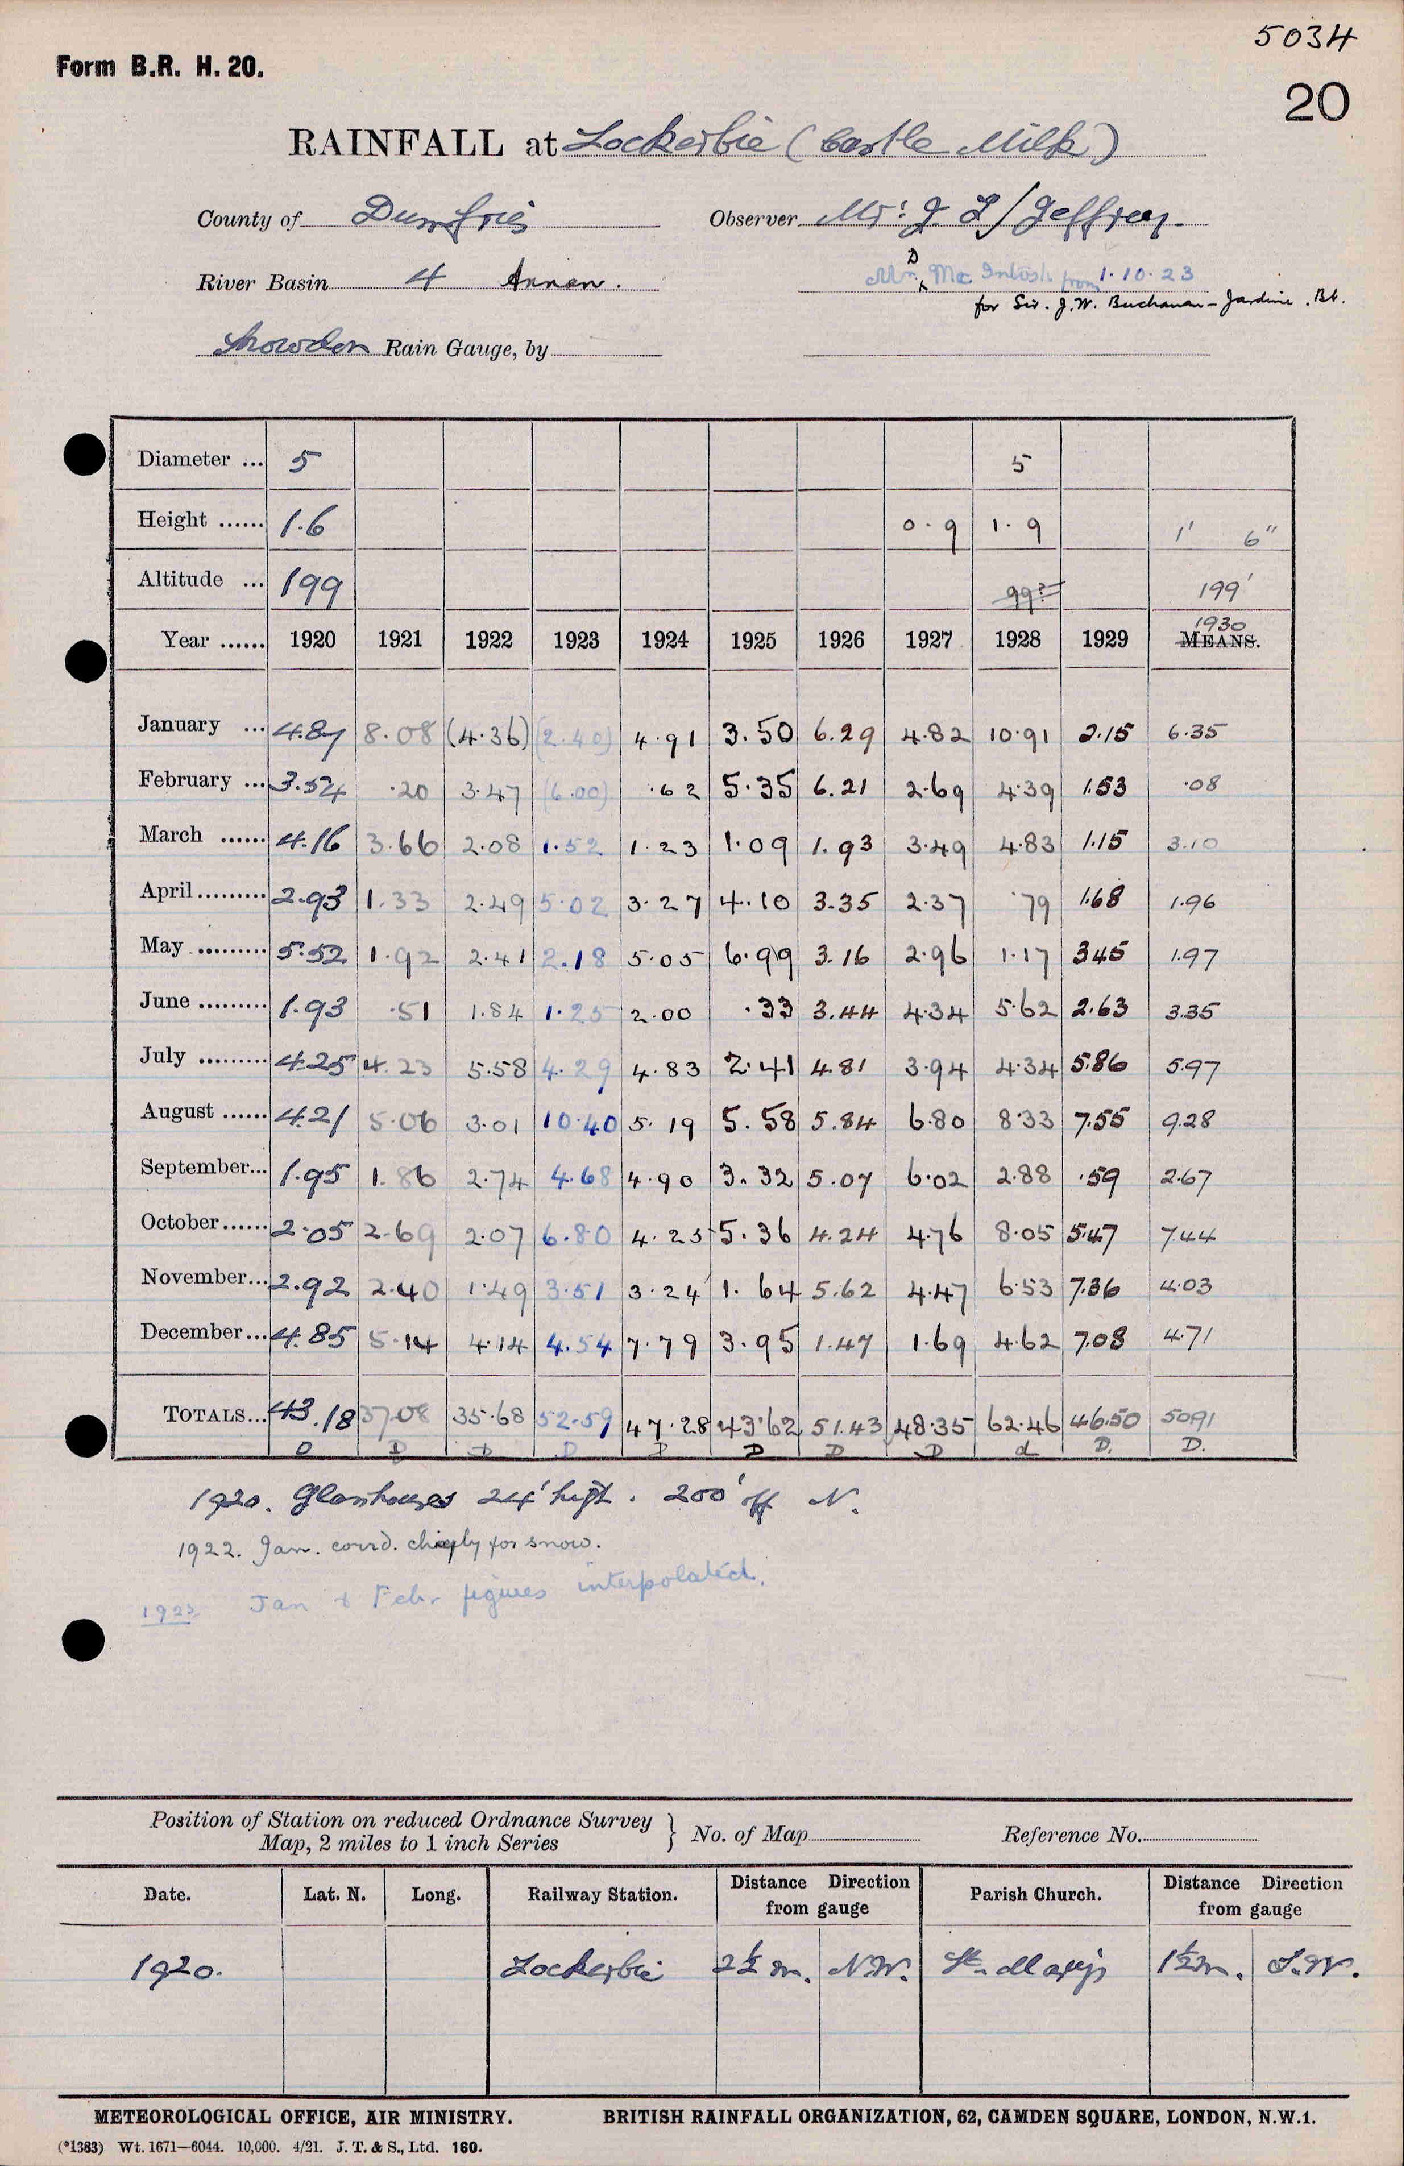 5034
Form B.R. H. 20.
20
RAINFALL at Lockerbie (Castle Milk)
County of Dumfries Observer Mr. J L Jeffrey
River Basin 4 Annan. Mr. D Mc Intosh from 1.10.23
for Sir. J. W. Buchanan-Jardine. Bt.
Snowdon Rain Gauge, by
Diameter ... 5 5
Height ...... 1.6 0.9 1.9 1' 6"
Altitude ... 199 99? 199'
Year ...... 1920 1921 1922 1923 1924 1925 1926 1927 1928 1929 MEANS. 1930
January ... 4.87 8.08 (4.36) (2.40) 4.91 3.50 6.29 4.82 10.91 2.15 6.35
February ... 3.54 .20 3.47 (6.00) .62 5.35 6.21 2.69 4.39 1.53 .08
March ...... 4.16 3.66 2.08 1.52 1.23 1.09 1.93 3.49 4.83 1.15 3.10
April ......... 2.93 1.33 2.49 5.02 3.27 4.10 3.35 2.37 .79 1.68 1.96
May ......... 5.52 1.92 2.41 2.18 5.05 6.99 3.16 2.96 1.17 3.45 1.97
June ......... 1.93 .51 1.84 1.25 2.00 .33 3.44 4.34 5.62 2.63 3.35
July ......... 4.25 4.23 5.58 4.29 4.83 2.41 4.81 3.94 4.34 5.86 5.97
August ...... 4.21 5.06 3.01 10.40 5.19 5.58 5.84 6.80 8.33 7.55 9.28
September... 1.95 1.86 2.74 4.68 4.90 3.32 5.07 6.02 2.88 .59 2.67
October...... 2.05 2.69 2.07 6.80 4.25 5.36 4.24 4.76 8.05 5.47 7.44
November... 2.92 2.40 1.49 3.51 3.24 1.64 5.62 4.47 6.53 7.36 4.03
December... 4.85 5.14 4.14 4.54 7.79 3.95 1.47 1.69 4.62 7.08 4.71
TOTALS... 43.18 37.08 35.68 52.59 47.28 43.62 51.43 48.35 62.46 46.50 50.91
D D D D D D D D d D. D.
1920. Glasshouses 24' high. 200' off N.
1922. Jan. corrd. chiefly for snow.
1923 Jan & Feb. figures interpolated.
Position of Station on reduced Ordnance Survey Map, 2 miles to 1 inch Series } No. of Map Reference No.
Date. Lat. N. Long. Railway Station. Distance Direction from gauge Parish Church. Distance Direction from gauge
1920. Lockerbie 2½ m. N.W. St. Mary's 1½ m. S.W.
METEOROLOGICAL OFFICE, AIR MINISTRY. BRITISH RAINFALL ORGANIZATION, 62, CAMDEN SQUARE, LONDON, N.W.1.
(*1383) Wt. 1671—6044. 10,000. 4/21. J. T. & S., Ltd. 160.